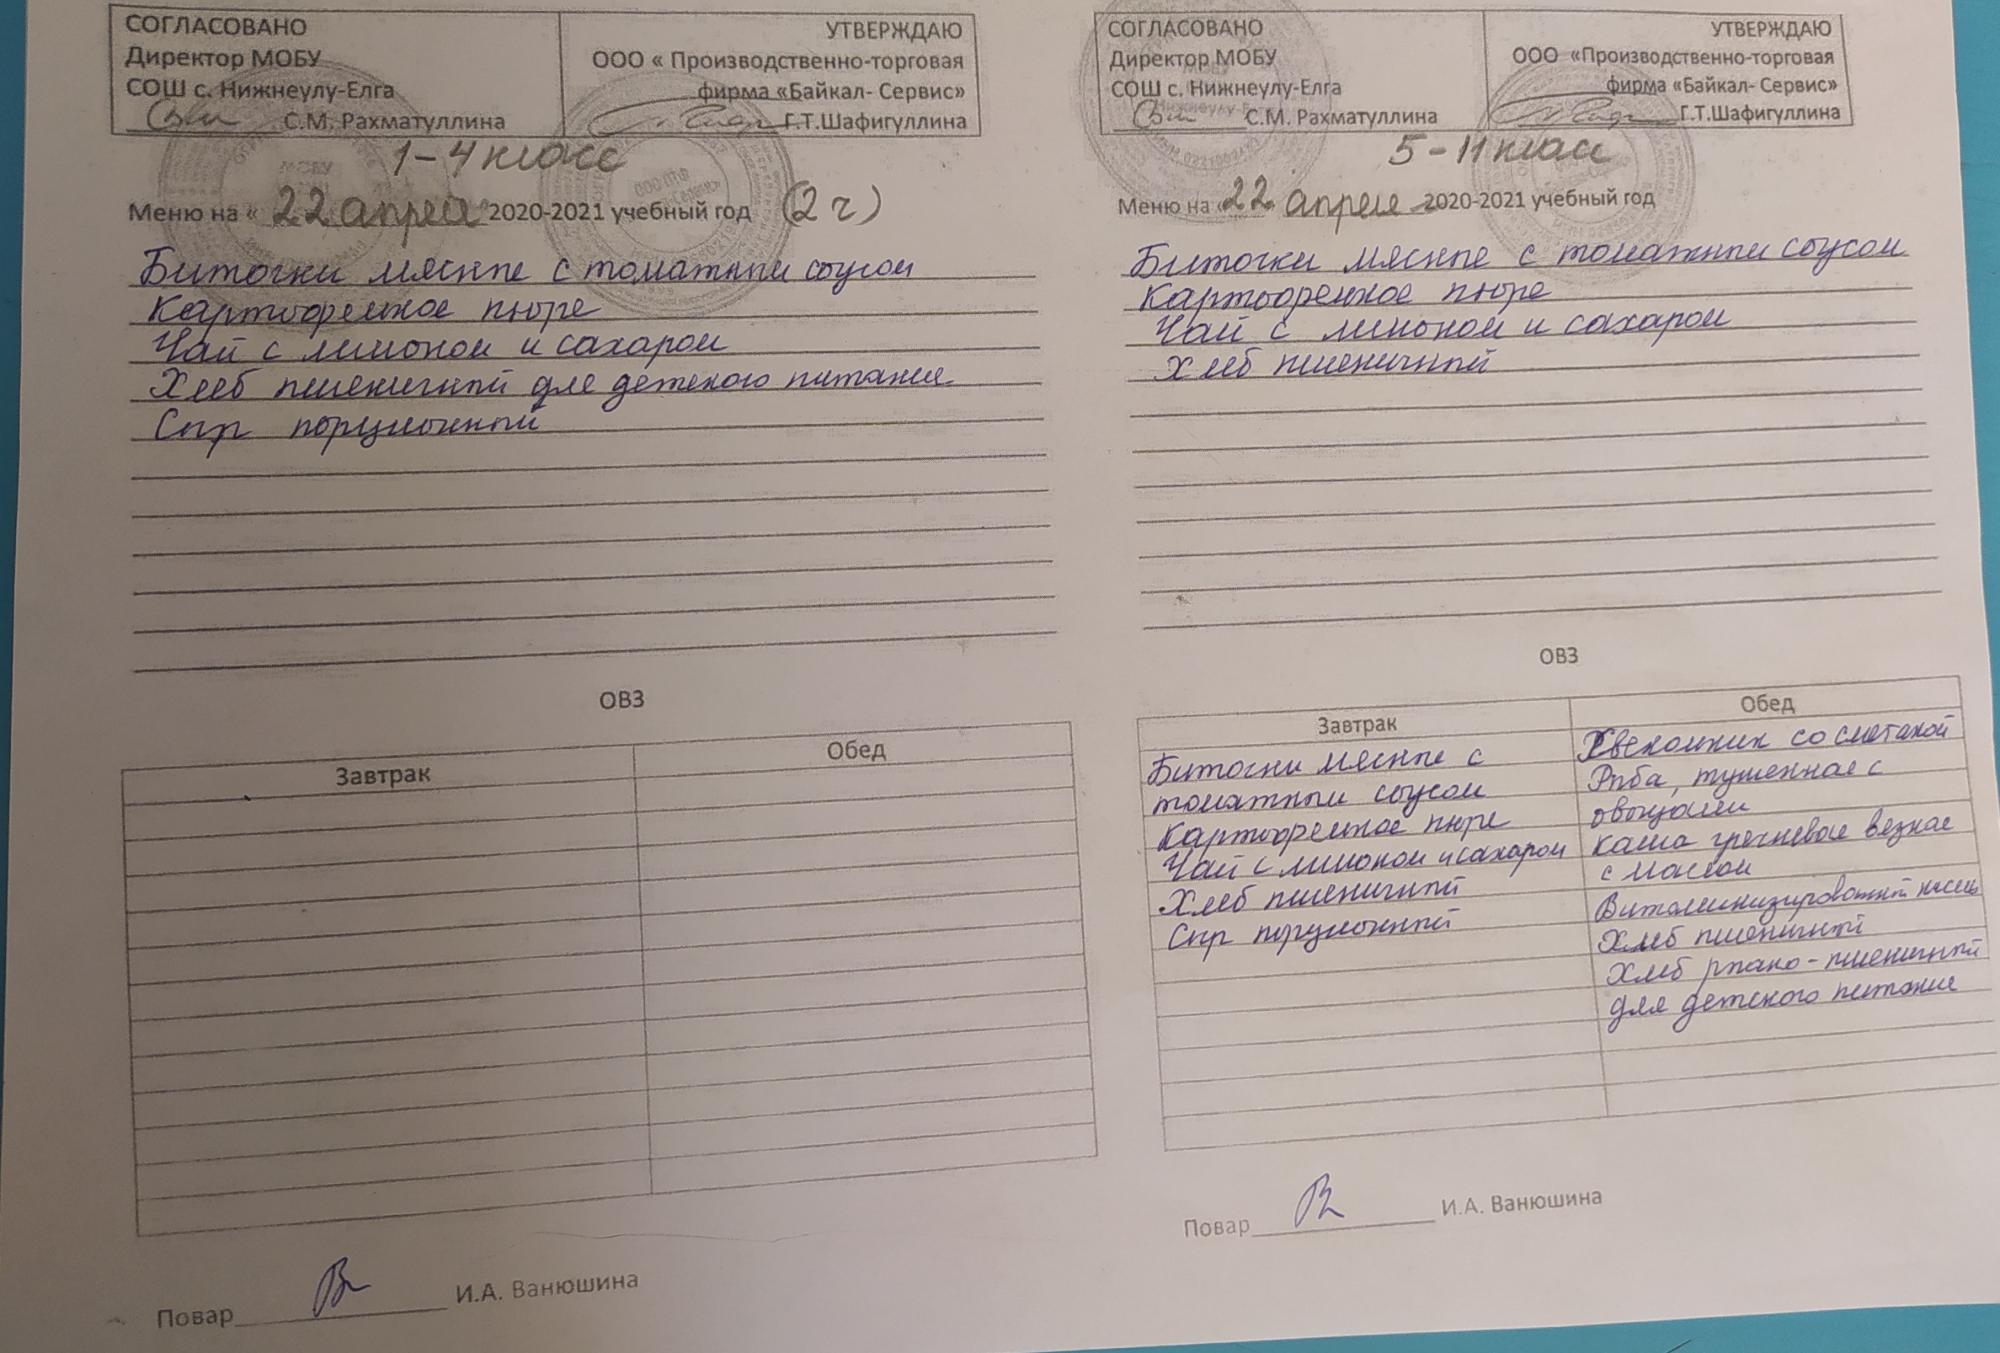 СОГЛАСОВАНО
Директор МОБУ
СОШ с. Нижнеулу-Елга
С.М. Рахматуллина
УТВЕРЖДАЮ
ООО « Производственно-торговая
фирма «Байкал- Сервис»
Г.Т.Шафигуллина
1-4 класс
Меню на « 22 апреля 2020-2021 учебный год (2 г)
Биточки мясные с томатным соусом
Картофельное пюре
Чай с лимоном и сахаром
Хлеб пшеничный для детского питания
Сыр порционный
ОВЗ
Завтрак Обед
Повар И.А. Ванюшина
СОГЛАСОВАНО
Директор МОБУ
СОШ с. Нижнеулу-Елга
С.М. Рахматуллина
УТВЕРЖДАЮ
ООО «Производственно-торговая
фирма «Байкал- Сервис»
Г.Т.Шафигуллина
5-11 класс
Меню на « 22 апреля 2020-2021 учебный год
Биточки мясные с томатным соусом
Картофельное пюре
Чай с лимоном и сахаром
Хлеб пшеничный
ОВЗ
Завтрак
Биточки мясные с
томатным соусом
Картофельное пюре
Чай с лимоном и сахаром
Хлеб пшеничный
Сыр порционный
Обед
Свекольник со сметаной
Рыба, тушенная с
овощами
Каша гречневая вязкая
с маслом
Витаминизированный кисель
Хлеб пшеничный
Хлеб ржано-пшеничный
для детского питания
Повар И.А. Ванюшина